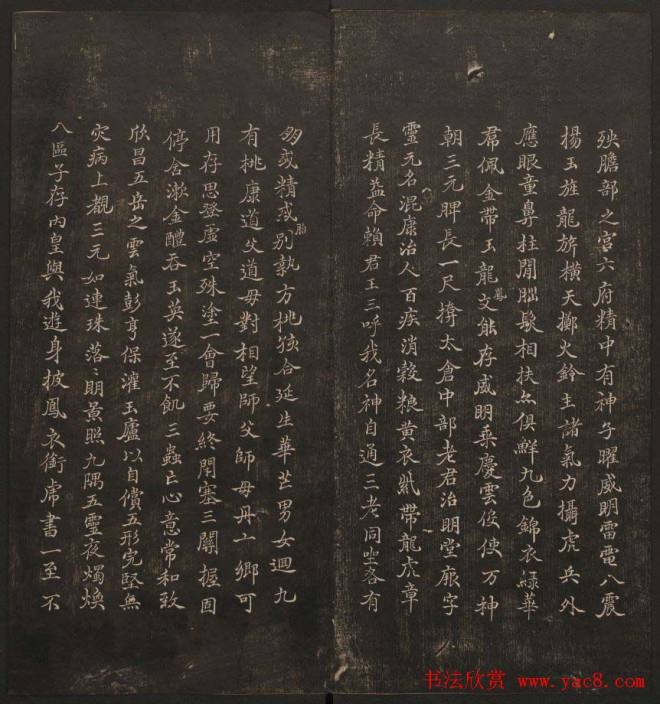 殃膽部之宮六府精中有神子曜威明雷電八震
揚玉旌龍旂橫天擲火鈴主諸氣力攝虎兵外
應眼童鼻柱間腦髮相扶亦俱鮮九色錦衣綠華
帬佩金帶玉龍文鳳能存威明乘慶雲役使万神
朝三元脾長一尺揜太倉中部老君治明堂厥字
靈元名混康治人百疾消穀粮黃衣紫帶龍虎章
長精益命賴君王三呼我名神自通三老同坐各有
朋或精或胎別執方桃孩合延生華芒男女迴九
有桃康道父道母對相望師父師母丹玄鄉可
用存思登虛空殊塗一會歸要終閉塞三關握固
停含漱金醴吞玉英遂至不飢三蟲亡心意常和致
欣昌五岳之雲氣彭亨保灌玉廬以自償五形完堅無
灾病上覩三元如連珠落〻明景照九隅五靈夜燭煥
八區子存內皇與我遊身披鳳衣銜虎書一至不
书法欣赏 www.yac8.com